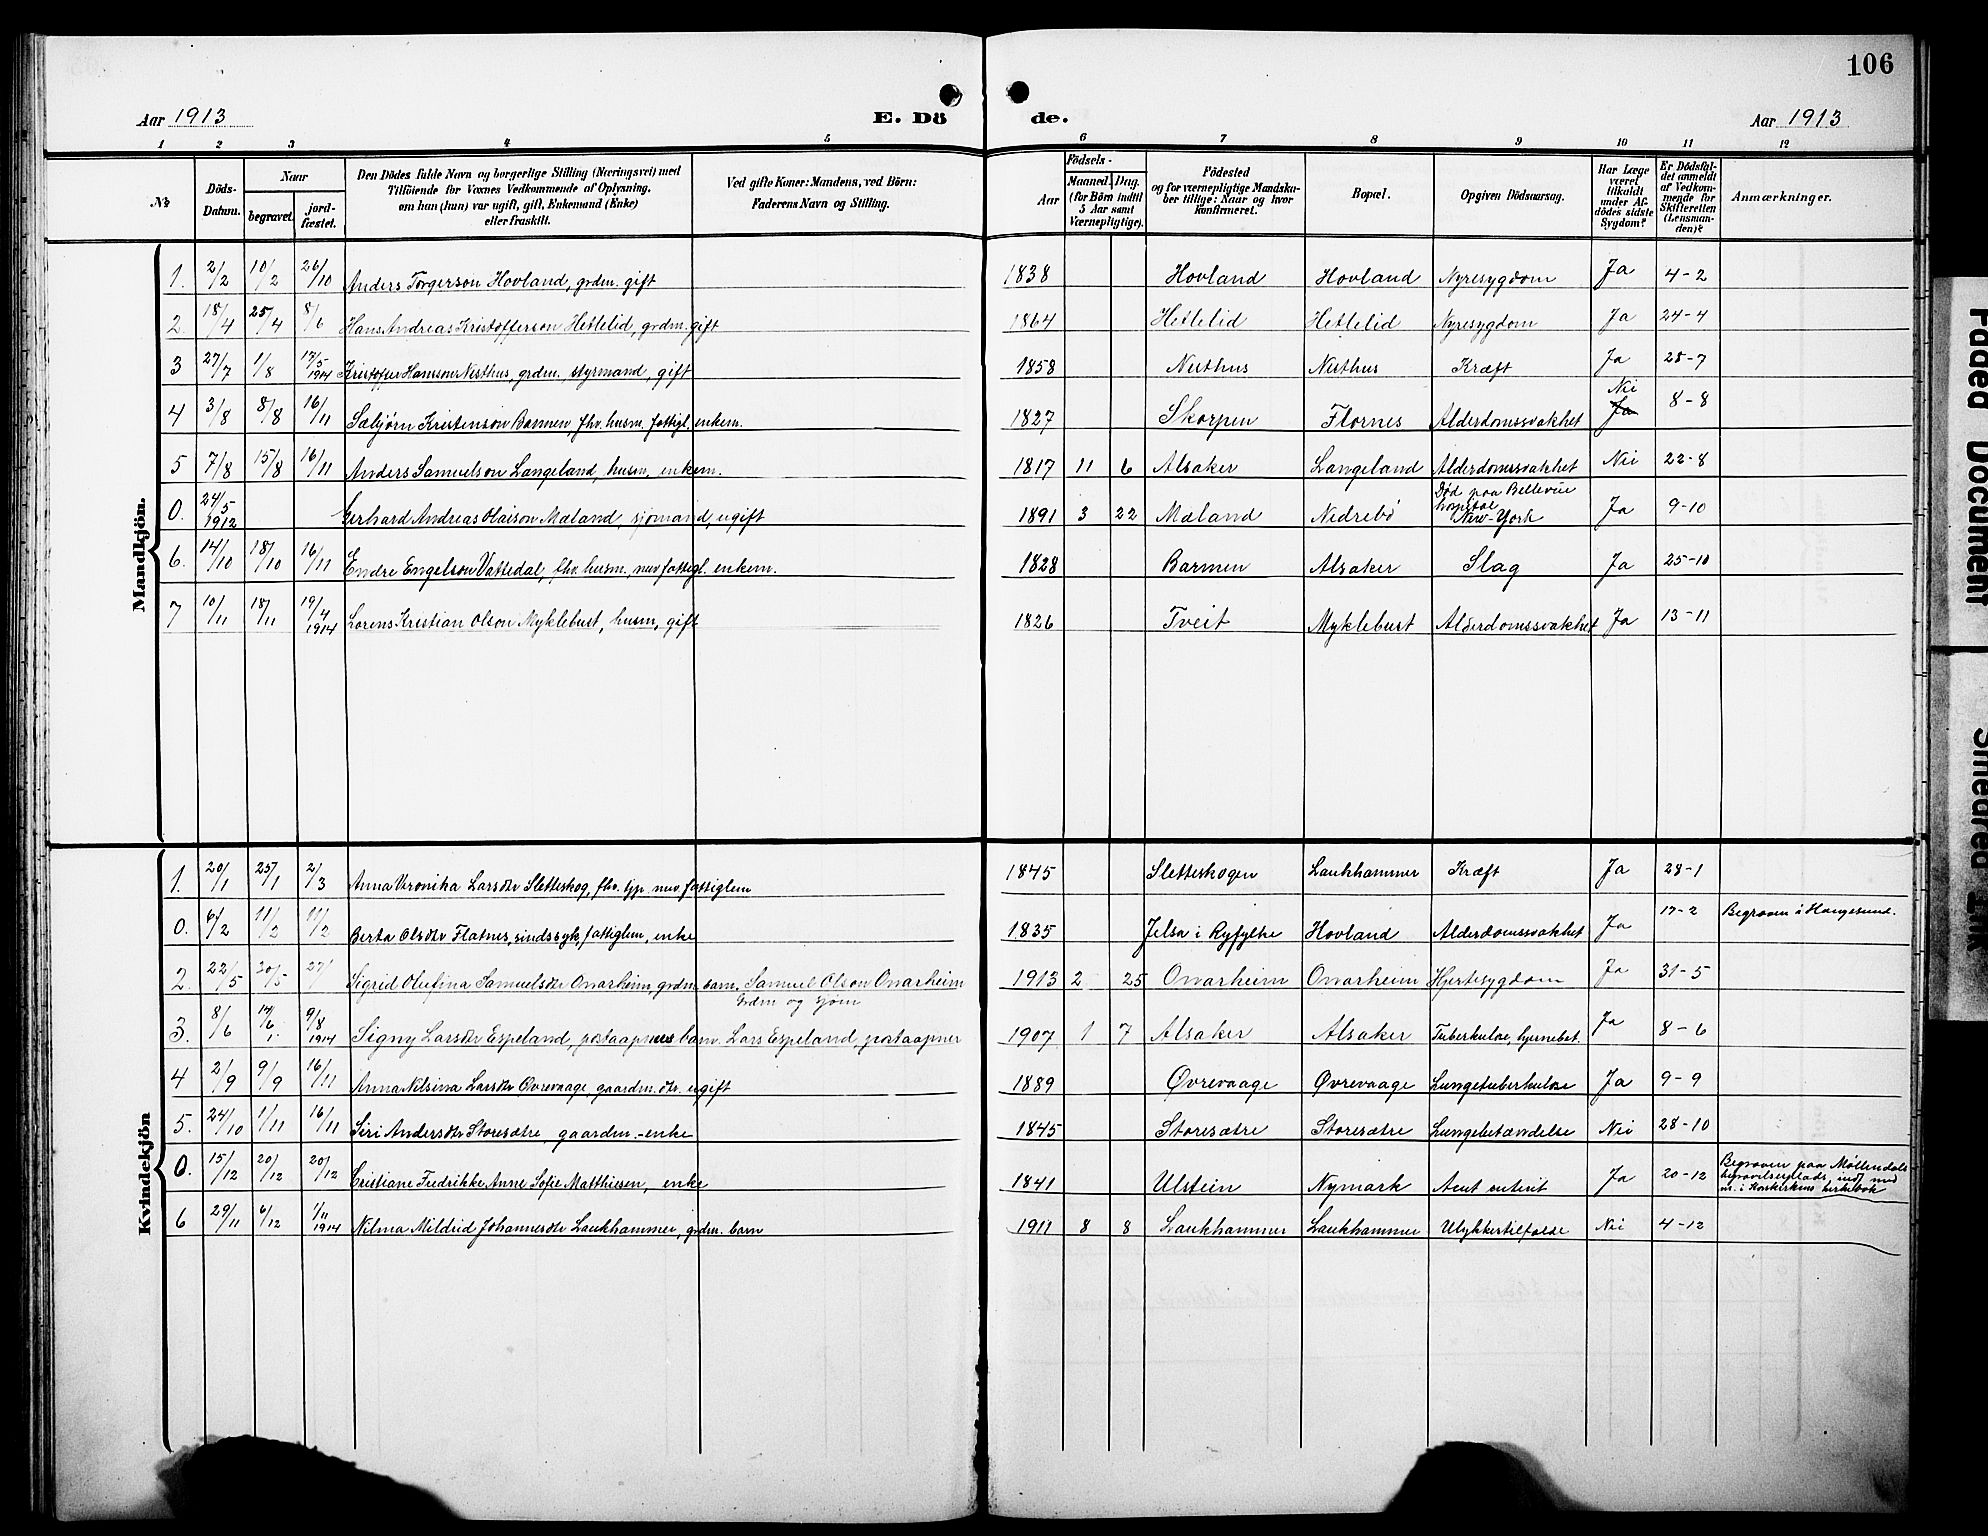 106
Aar 1913 E. Dö de. Aar 1913
1 2 3 4 5 6 7 8 9 10 11 12
№ Döds-Datum. Naar begravet. jordfæstet. Den Dödes fulde Navn og borgerlige Stilling (Næringsvei) med Tilföiende for Voxnes Vedkommende af Oplysning, om han (hun) var ugift, gift, Enkemand (Enke) eller fraskilt. Ved gifte Koner: Mandens, ved Börn: Faderens Navn og Stilling. Födsels- Aar Maaned. Dag. (for Börn indtil 5 Aar samt Værnepligtige). Födested og for værnepligtige Mandskaber tillige: Naar og hvor konfirmeret. Bopæl. Opgiven Dödsaarsag. Har Læge været tilkaldt under Afdödes sidste Sygdom? Er Dödsfaldet anmeldt af Vedkommende for Skifteretten (Lensmanden)? Anmærkninger.
Mandkjön.
1. 2/2 10/2 26/10 Anders Torgerson Hovland, grdm. gift 1838 Hovland Hovland Nyresygdom Ja 4-2
2. 18/4 25/4 8/6 Hans Andreas Kristofferson Hetlelid, grdm. gift 1864 Hetlelid Hetlelid Nyresygdom Ja 24-4
3 27/7 1/8 17/5 1914 Kristoffer Hansson Nesthus, grdm., styrmand, gift 1858 Nesthus Nesthus Kræft Ja 28-7
4 3/8 8/8 16/11 Sæbjørn Kristenson Barmen, fhv. husm. fattigl. enkem. 1827 Skorpen Flornes Alderdomssvakhet Nei Ja 8-8
5 7/8 15/8 16/11 Anders Samuelson Langeland, husm., enkem. 1817 11 6 Alsaker Langeland Alderdomssvakhet Nei 22-8
0. 24/5 1912 Gerhard Andreas Olaison Mæland, sjømand, ugift 1891 3 22 Mæland Nedrebø Død paa Bellevue hospital New-York Ja 9-10
6. 14/10 18/10 16/11 Endre Engelson Vattedal, fhv. husm., nuv. fattigl. enkem. 1828 Barmen Alsaker Slag Ja 25-10
7 10/11 18/11 19/4 1914 Lorens Kristian Olson Myklebust, husm, gift 1826 Tveit Myklebust Alderdomssvakhet Ja 13-11
Kvindekjön
1. 20/1 25/1 2/3 Anna Veronika Larsdtr Sletteskog, fhv. tjp. nuv. fattiglem 1845 Sletteskogen Laukhammer Kræft Ja 28-1
0. 6/2 11/2 11/2 Berta Olsdtr Flatnes, sindssyk, fattiglem, enke 1835 Jelsa i Ryfylke Hovland Alderdomssvakhet Ja 17-2 Begraven i Haugesund.
2. 22/5 20/5 27/ Sigrid Olufina Samuelsdtr Onarheim grdm. barn. Samuel Olson Onarheim 1913 2 25 Onarheim Onarheim Hjertesygdom Ja 31-5
Grdm og sjøm
3. 8/6 14/6 9/8 1914 Signy Larsdtr Espeland, postaapners barn. Lars Espeland, postaapner 1907 1 7 Alsaker Alsaker Tuberkuløs, hjernebet. Ja 8-6
4 2/9 9/9 16/11 Anna Nilsina Larsdtr Øvrevaage, gaardm. dtr. ugift 1889 Øvrevaage Øvrevaage Lungetuberkulose Ja 9-9
5. 24/10 1/11 16/11 Siri Andersdtr Storesætre, gaardm.-enke 1845 Storesætre Storesætre Lungebetændelse Nei 28-10
0. 15/12 20/12 20/12 Cristiane Fredrikke Anne Sofie Matthiesen, enke 1841 Ulstein Nymark Acut enterit Ja 20-12 Begraven paa Møllendals begravelsesplads, indf. med nr. i Korskirkens kirkebok
6 29/11 6/12 1/11 1914 Nilma Mildrid Johannesdtr Laukhammer, grdm. barn 1911 8 8 Laukhammer Laukhammer Ulykkestilfælde Nei 4-12
Faded Document
Smeared Ink